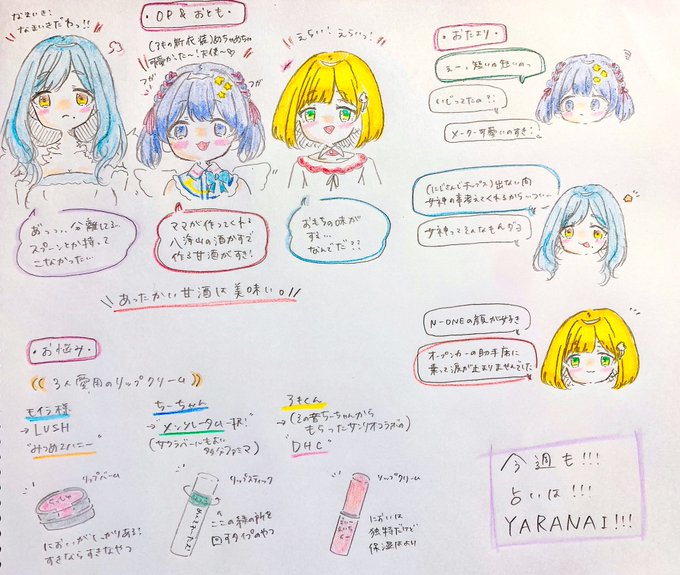 なまいき!
なまいきだわっ!!
・OP&おとも・
(ろきの新衣装)めちゃめちゃ
騒がた〜!天使〜♡
フガ
フガ
えらい!えらいっ!
あっっっ、分離してる…
スプーンとか持って
こなかった…
ママが作ってくれる
八海山の酒かすで
作る甘酒がすき!
おもちの味が
する…
なんでだ??
あったかい甘酒は美味い。
・おたより・
えー、短いの短いのっ
いじってたの?!
メーター可愛いのすき!
(にじさんじチップス)出ない肉
女神の事考えてくれるから…つい…
女神ってそんなもんダヨ
N-ONEの顔が好き
オープンカーの助手席に
乗って涙が止まりませんでした
・お悩み・
3人愛用のリップクリーム
モイラ様
→LUSH
"みつめてハニー"
ちーちゃん
→"メンソレータム一択!"
(サクラベールもよい
ファミマ)
ろきくん
→(その昔ちーちゃんから
もらったサンリオコラボの)
"DHC"
リップバーム
すきならすきなやつ
リップスティック
ここの緑の所を
回すタイプのやつ
リップクリーム
においは
独特だけど
保湿はよい
今週も!!!
占いは!!!
YARANAI!!!